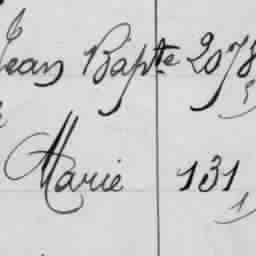 Jean Bapte 2078
Marie 131